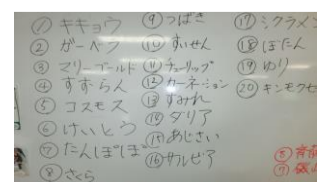 ① キキョウ
② ガーベラ
③ マリーゴールド
④ すずらん
⑤ コスモス
⑥ けいとう
⑦ たんぽぽ
⑧ さくら
⑨ つばき
⑩ すいせん
⑪ チューリップ
⑫ カーネーション
⑬ すみれ
⑭ ダリア
⑮ あじさい
⑯ サルビア
⑰ シクラメン
⑱ ぼたん
⑲ ゆり
⑳ キンモクセ